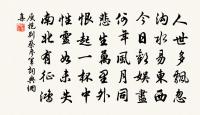 人世多飄忽
溝水易東西
今日歡娛盡
何年風月同
悲生萬里外
恨起一杯中
性靈如未失
南北有征鴻
庾抱別蔡參軍詞典網
集